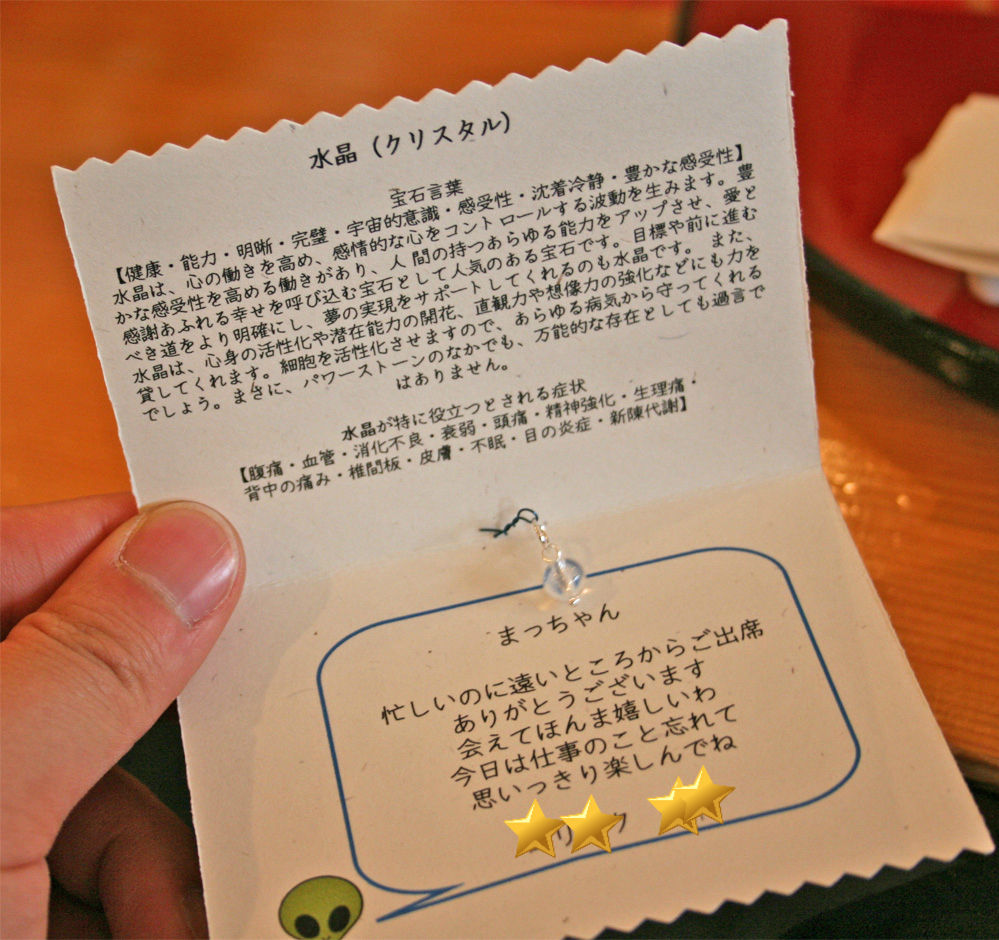 水晶（クリスタル）
宝石言葉
【健康・能力・明晰・完璧・宇宙的意識・感受性・沈着冷静・豊かな感受性】
水晶は、心の働きを高め、感情的な心をコントロールする波動を生みます。豊
かな感受性を高める働きがあり、人間の持つあらゆる能力をアップさせ、愛と
感謝あふれる幸せを呼び込む宝石として人気のある宝石です。目標や前に進む
べき道をより明確にし、夢の実現をサポートしてくれるのも水晶です。また、
水晶は、心身の活性化や潜在能力の開花、直観力や想像力の強化などにも力を
貸してくれます。細胞を活性化させますので、あらゆる病気から守ってくれる
でしょう。まさに、パワーストーンのなかでも、万能的な存在としても過言で
はありません。
水晶が特に役立つとされる症状
【腹痛・血管・消化不良・衰弱・頭痛・精神強化・生理痛・
背中の痛み・椎間板・皮膚・不眠・目の炎症・新陳代謝】
まっちゃん
忙しいのに遠いところからご出席
ありがとうございます
会えてほんま嬉しいわ
今日は仕事のこと忘れて
思いっきり楽しんでね